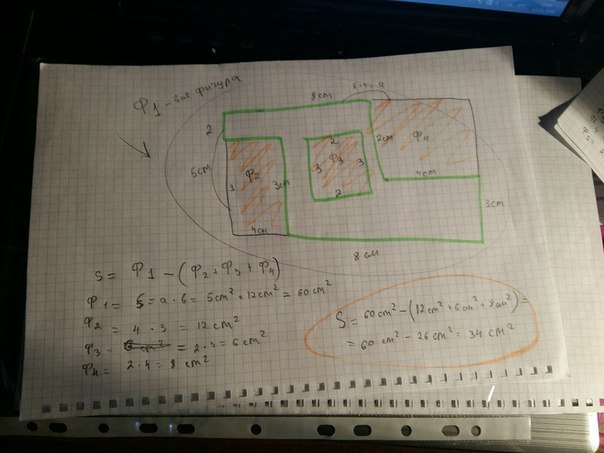 Ф1 - вся фигура
8 cm
8+4=12
2
2
5cm
Ф2
3
3cm
3
Ф3
3
2cm
Ф4
2
4cm
4см
3cm
8 см
S = Ф1 - (Ф2 + Ф3 + Ф4)
Ф1 = S = a · b = 5cm² · 12cm² = 60 cm²
Ф2 = 4 · 3 = 12 cm²
Ф3 = = 2 · 3 = 6 cm²
Ф4 = 2 · 4 = 8 cm²
S = 60 cm² - (12 cm² + 6 cm² + 8 cm²) =
= 60 cm² - 26 cm² = 34 cm²